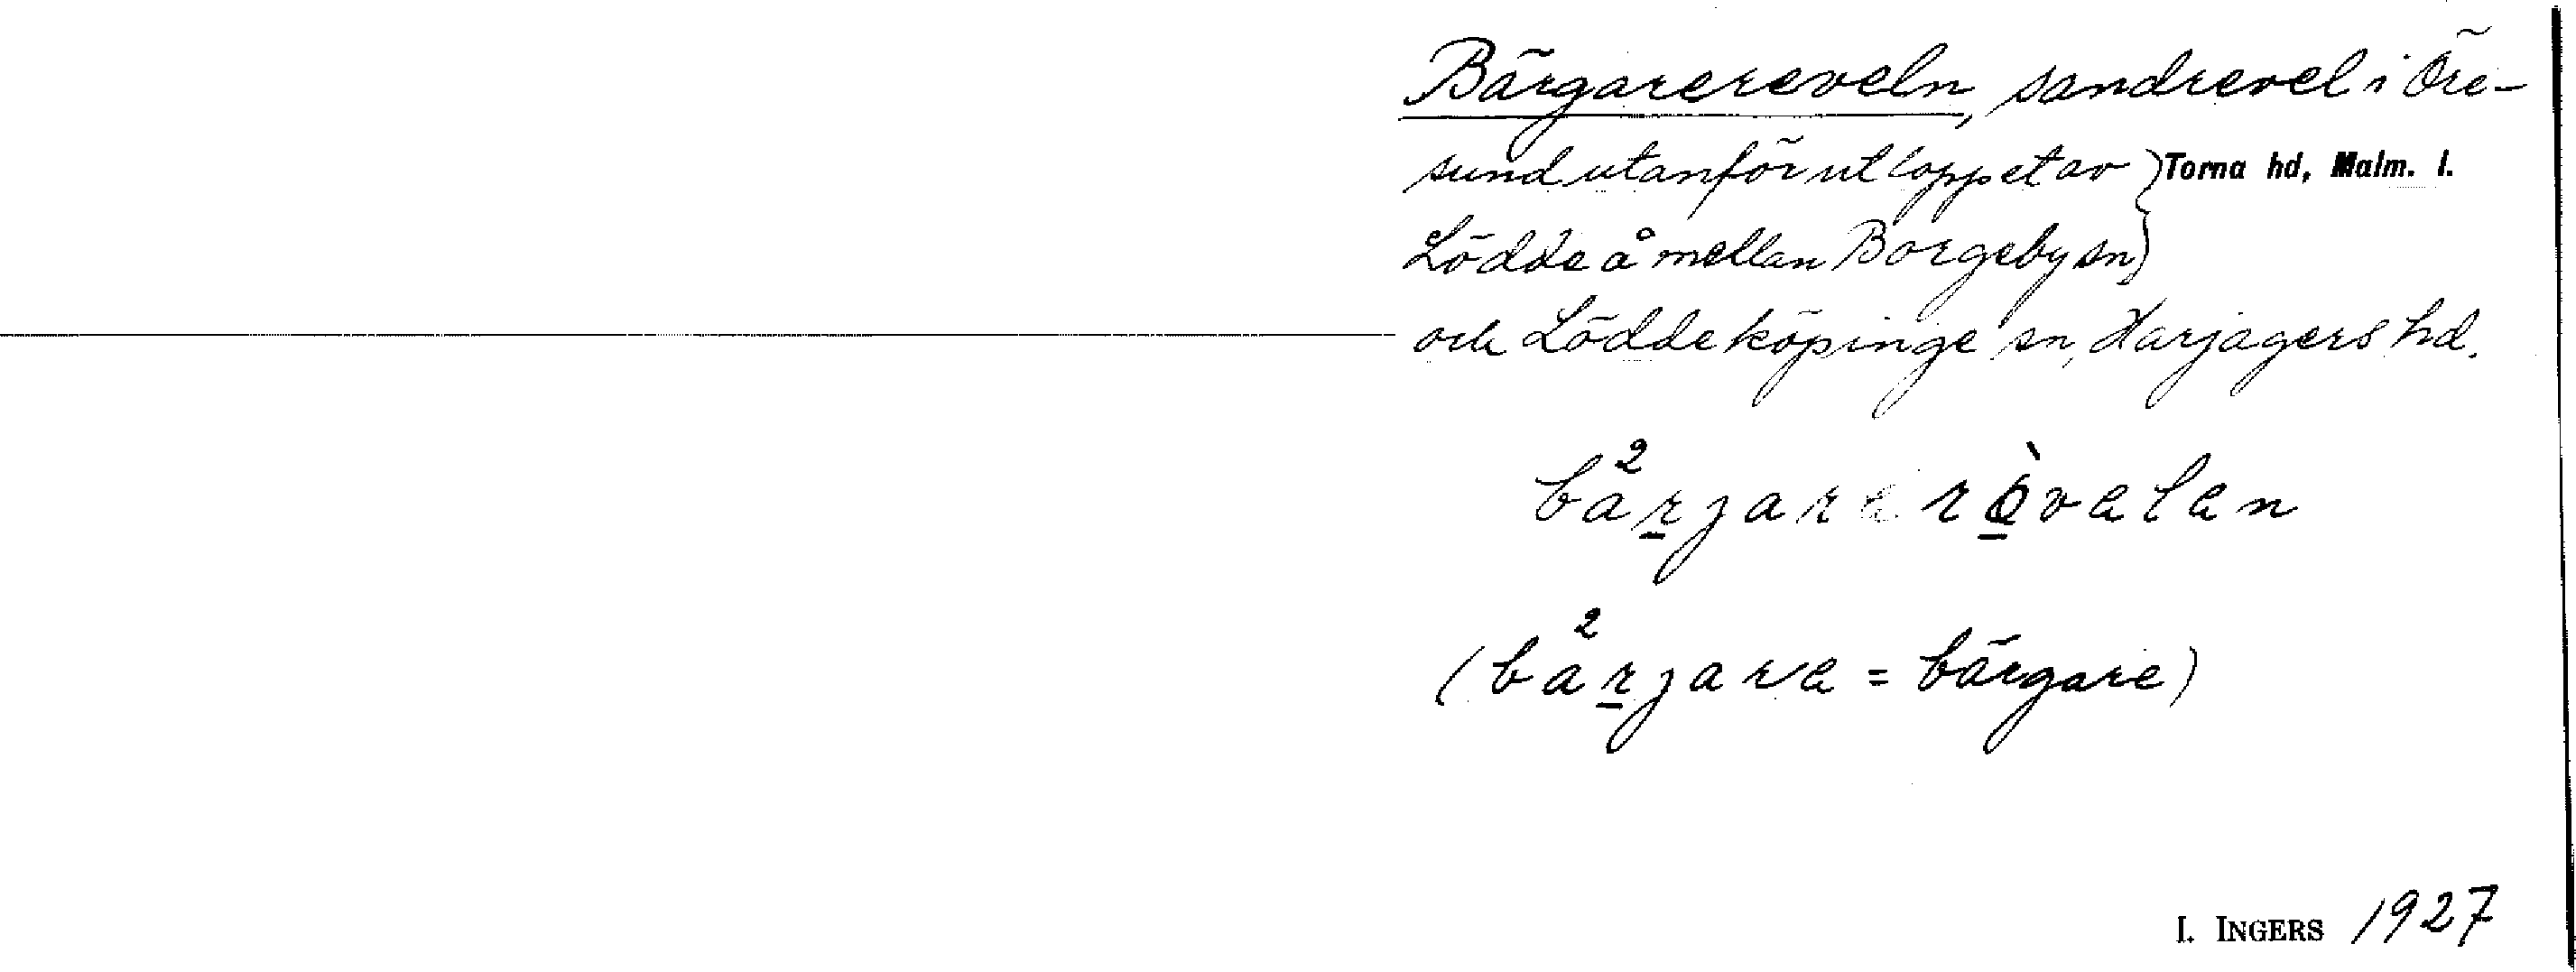 Bärgarereveln, sandrevel i Öre-
sund utanför utloppet av } Torna hd, Malm. l.
Lödde å mellan Borgeby sn }
och Löddeköpinge sn, Harjagers hd.
(ba²rjare = bärgare)
I. INGERS 1927